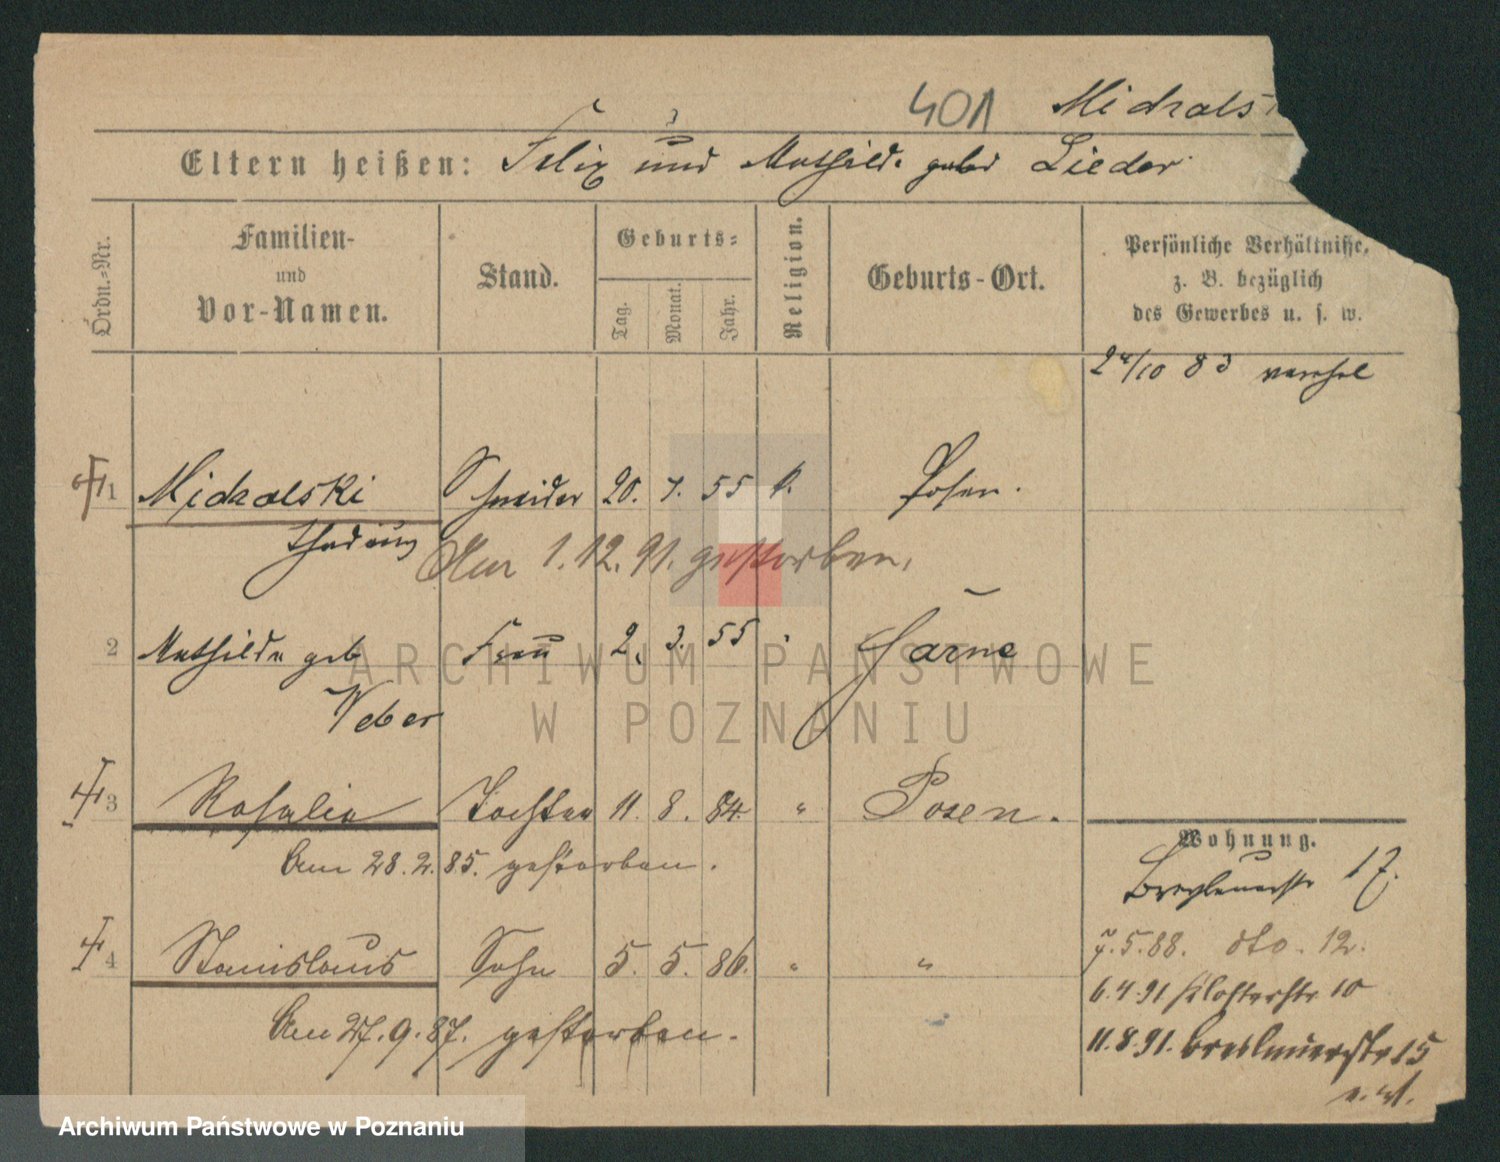 401 Michals
Eltern heißen: Felix und Mathilde gebor Lieder
Ordn.-Nr.
Familien-
und
Vor-Namen.
Stand.
Geburts-
Tag.
Monat.
Jahr.
Religion.
Geburts-Ort.
Persönliche Verhältnisse,
z. B. bezüglich
des Gewerbes u. s. w.
10 83
1 Michalski Schneider 20. 55 k. Posen.
Am 1.12.91. gestorben.
2 Mathilde geb Frau 2. 3. 55 Görne
Weber
3 Rosalie Tochter 11. 8. 84. " Posen.
Am 28.2.85. gestorben.
4 Stanislaus Sohn 5. 5. 86. " "
Am 27.9.87. gestorben.
Wohnung.
Breslauerstr 17.
7.5.88. dto. 12.
6.4.91 Klosterstr 10
11.8.91. Breslauerstr 15
ARCHIWUM PAŃSTWOWE
W POZNANIU
Archiwum Państwowe w Poznaniu